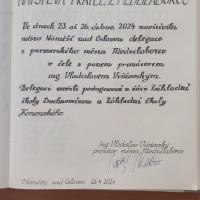 NÁVŠTĚVA PŘÁTEL Z MEDZILABOREC
Ve dnech 23. až 26. dubna 2024 navštívila
město Náměšť nad Oslavou delegace
z partnerského města Medzilaborce
v čele s panem primátorem
ing. Vladislavem Višňovským.
Delegaci tvořili pedagogové a žáci Základní
školy Duchnovičova a Základní školy
Komenského.
Ing. Vladislav Višňovský
primátor města Medzilaborce
V Náměšti nad Oslavou 26.4.2024